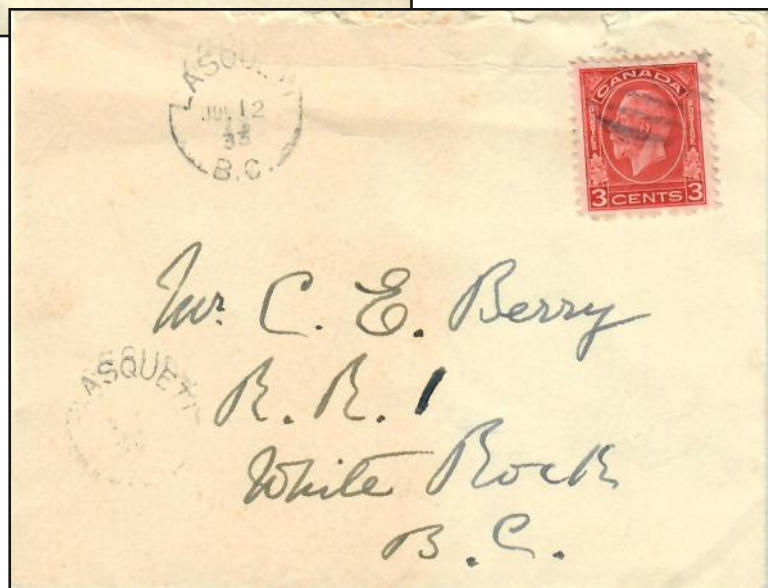 LASQUETI
JUL 12
33
B.C.
CANADA
3 CENTS 3
Mr. C. E. Berry
R. R. 1
White Rock
B. C.
ASQUETI